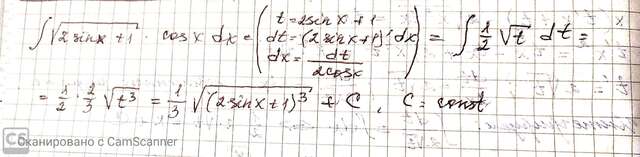 ∫ √(2sinx+1) · cosx dx = ( t=2sinx+1
dt=(2sinx+1)' dx
dx = dt/(2cosx) ) = ∫ 1/2 √t dt =
= 1/2 · 2/3 √(t³) = 1/3 √((2sinx+1)³) + C, C = const
CS
Сканировано с CamScanner